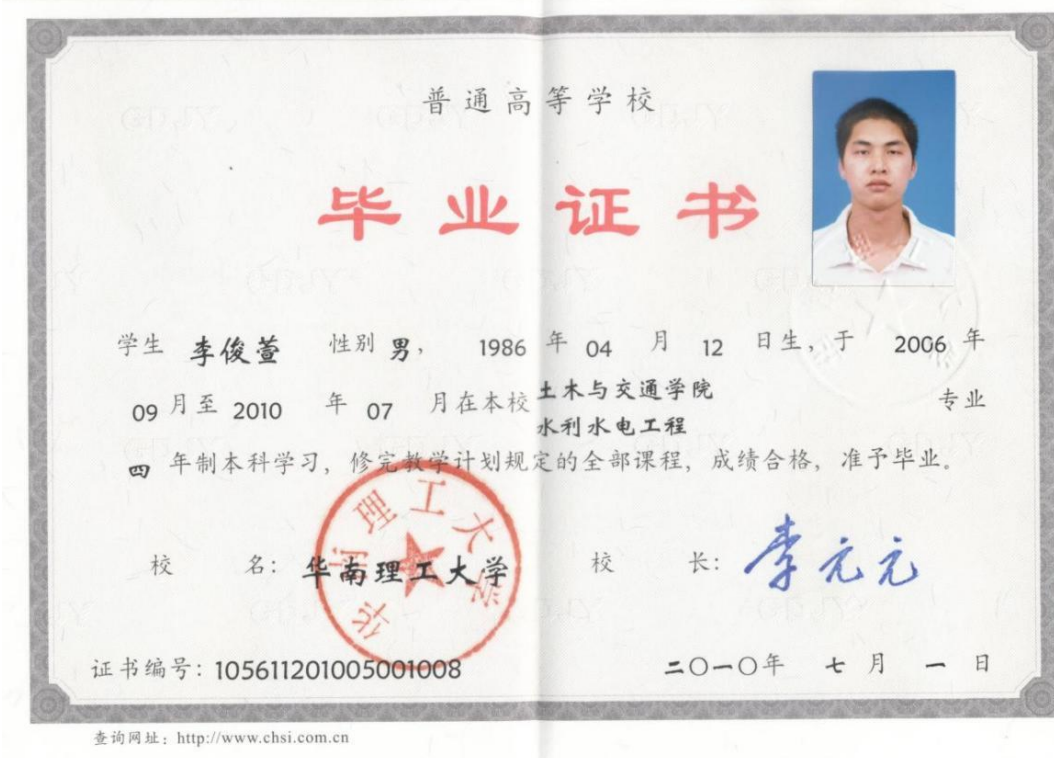 普通高等学校
毕业证书
学生 李俊萱 性别 男， 1986 年 04 月 12 日生，于 2006 年
09 月至 2010 年 07 月在本校 土木与交通学院 专业
水利水电工程
四 年制本科学习，修完教学计划规定的全部课程，成绩合格，准予毕业。
校 名： 华南理工大学 校 长： 李元元
华南理工大学
证书编号：105611201005001008 二〇一〇年 七 月 一 日
查询网址：http://www.chsi.com.cn